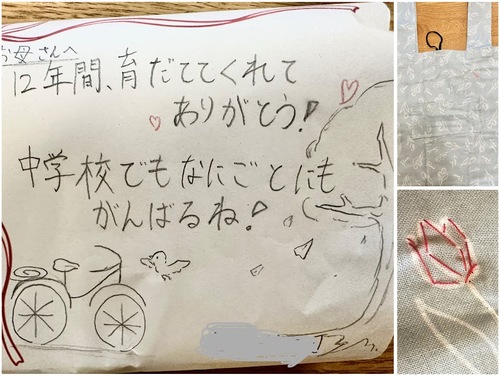 お母さんへ
12年間、育だててくれて
ありがとう!
中学校でもなにごとにも
がんばるね!